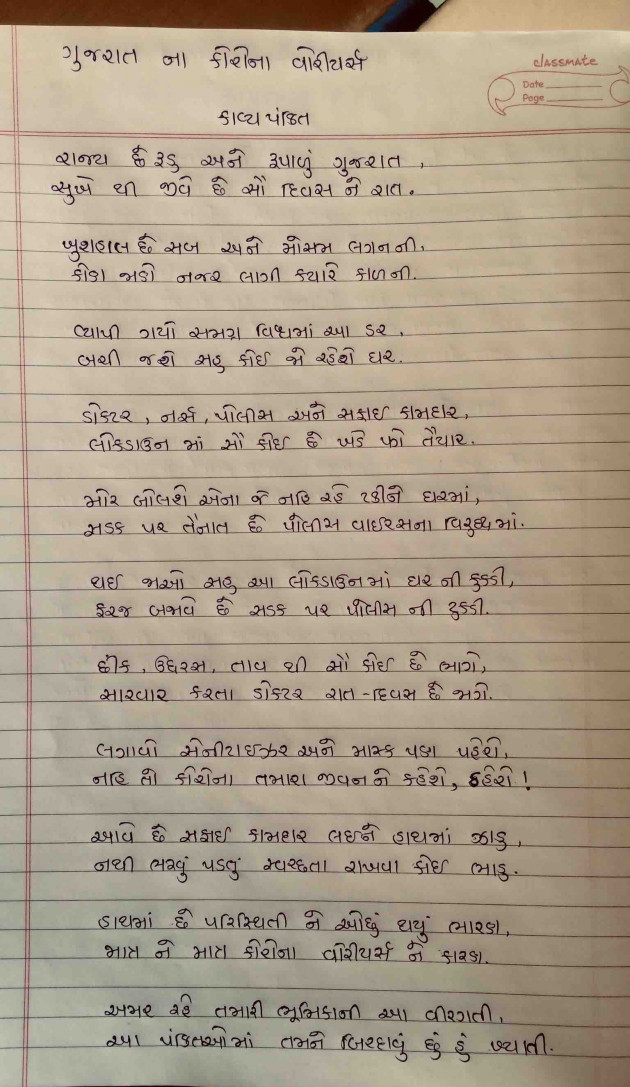 ગુજરાત ના કોરોના વોરીયર્સ
classmate
Date
Page
કાવ્ય પંક્તિ
રાજ્ય છે રૂડુ અને રૂપાળું ગુજરાત,
સુખે થી જીવે છે સૌ દિવસ ને રાત.
ખુશહાલ છે સબ અને મોસમ લગનની,
કોકા જાકો નજર લાગી ક્યારે કાળની.
વ્યાપી ગયો સમગ્ર વિશ્વમાં આ ડર,
બચી જશે સહુ કોઈ જો રહેશે ઘર.
ડોક્ટર, નર્સ, પોલીસ અને સફાઈ કામદાર,
લોકડાઉન માં સૌ કોઈ છે ખડે ફો તૈયાર.
મોર બોલશે એના જે નહિ રહે ટકીને ઘરમાં,
સડક પર તૈનાત છે પોલીસ વાઇરસના વિરુધ્ધમાં.
થઈ જાઓ સહુ આ લોકડાઉનમાં ઘર ની કુકડી,
ફરજ બજાવે છે સડક પર પોલીસ ની ટુકડી.
છીંક, ઉધરસ, તાવ થી સૌ કોઈ છે ભાગે,
સારવાર કરતા ડોક્ટર રાત-દિવસ છે જાગે.
લગાવો સેનીટાઇઝર અને માસ્ક પણ પહેરો,
નહિ તો કોરોના તમારા જીવન ને કહેશે, ઠહેરો!
આવે છે સફાઈ કામદાર લઇને હાથમાં ઝાડુ,
નથી ભરવું પડતું સ્વચ્છતા રાખવા કોઈ ભાડુ.
હાથમાં છે પરિસ્થિતી ને ઓછું થયું ભારણ,
માત્ર ને માત્ર કોરોના વોરીયર્સ ને કારણ.
અમર રહે તમારી ભૂમિકાની આ વીરગતી,
આ પંક્તિઓમાં તમને બિરદાવું છું હું ખ્યાતી.